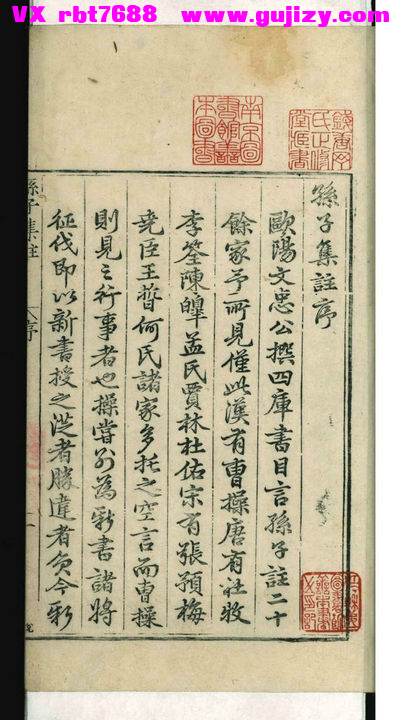 VX rbt7688 www.gujizy.com
孫子集註序
歐陽文忠公撰四庫書目言孫子註二十
餘家予所見僅此漢有曹操唐有杜牧
李筌陳皥孟氏賈林杜佑宋有張預梅
堯臣王晳何氏諸家多托之空言而曹操
則見之行事者也操嘗別為新書諸將
征伐即以新書授之從者勝違者負今新
孫子集註
序
南京圖書館善本圖書